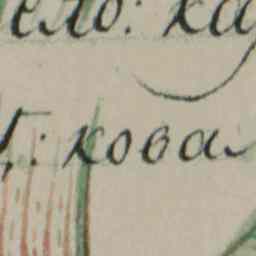 ело: ка
: кова